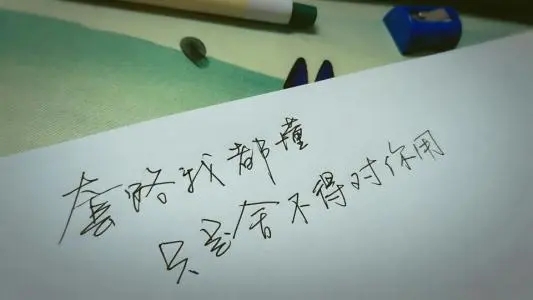 套路我都懂
只是舍不得对你用